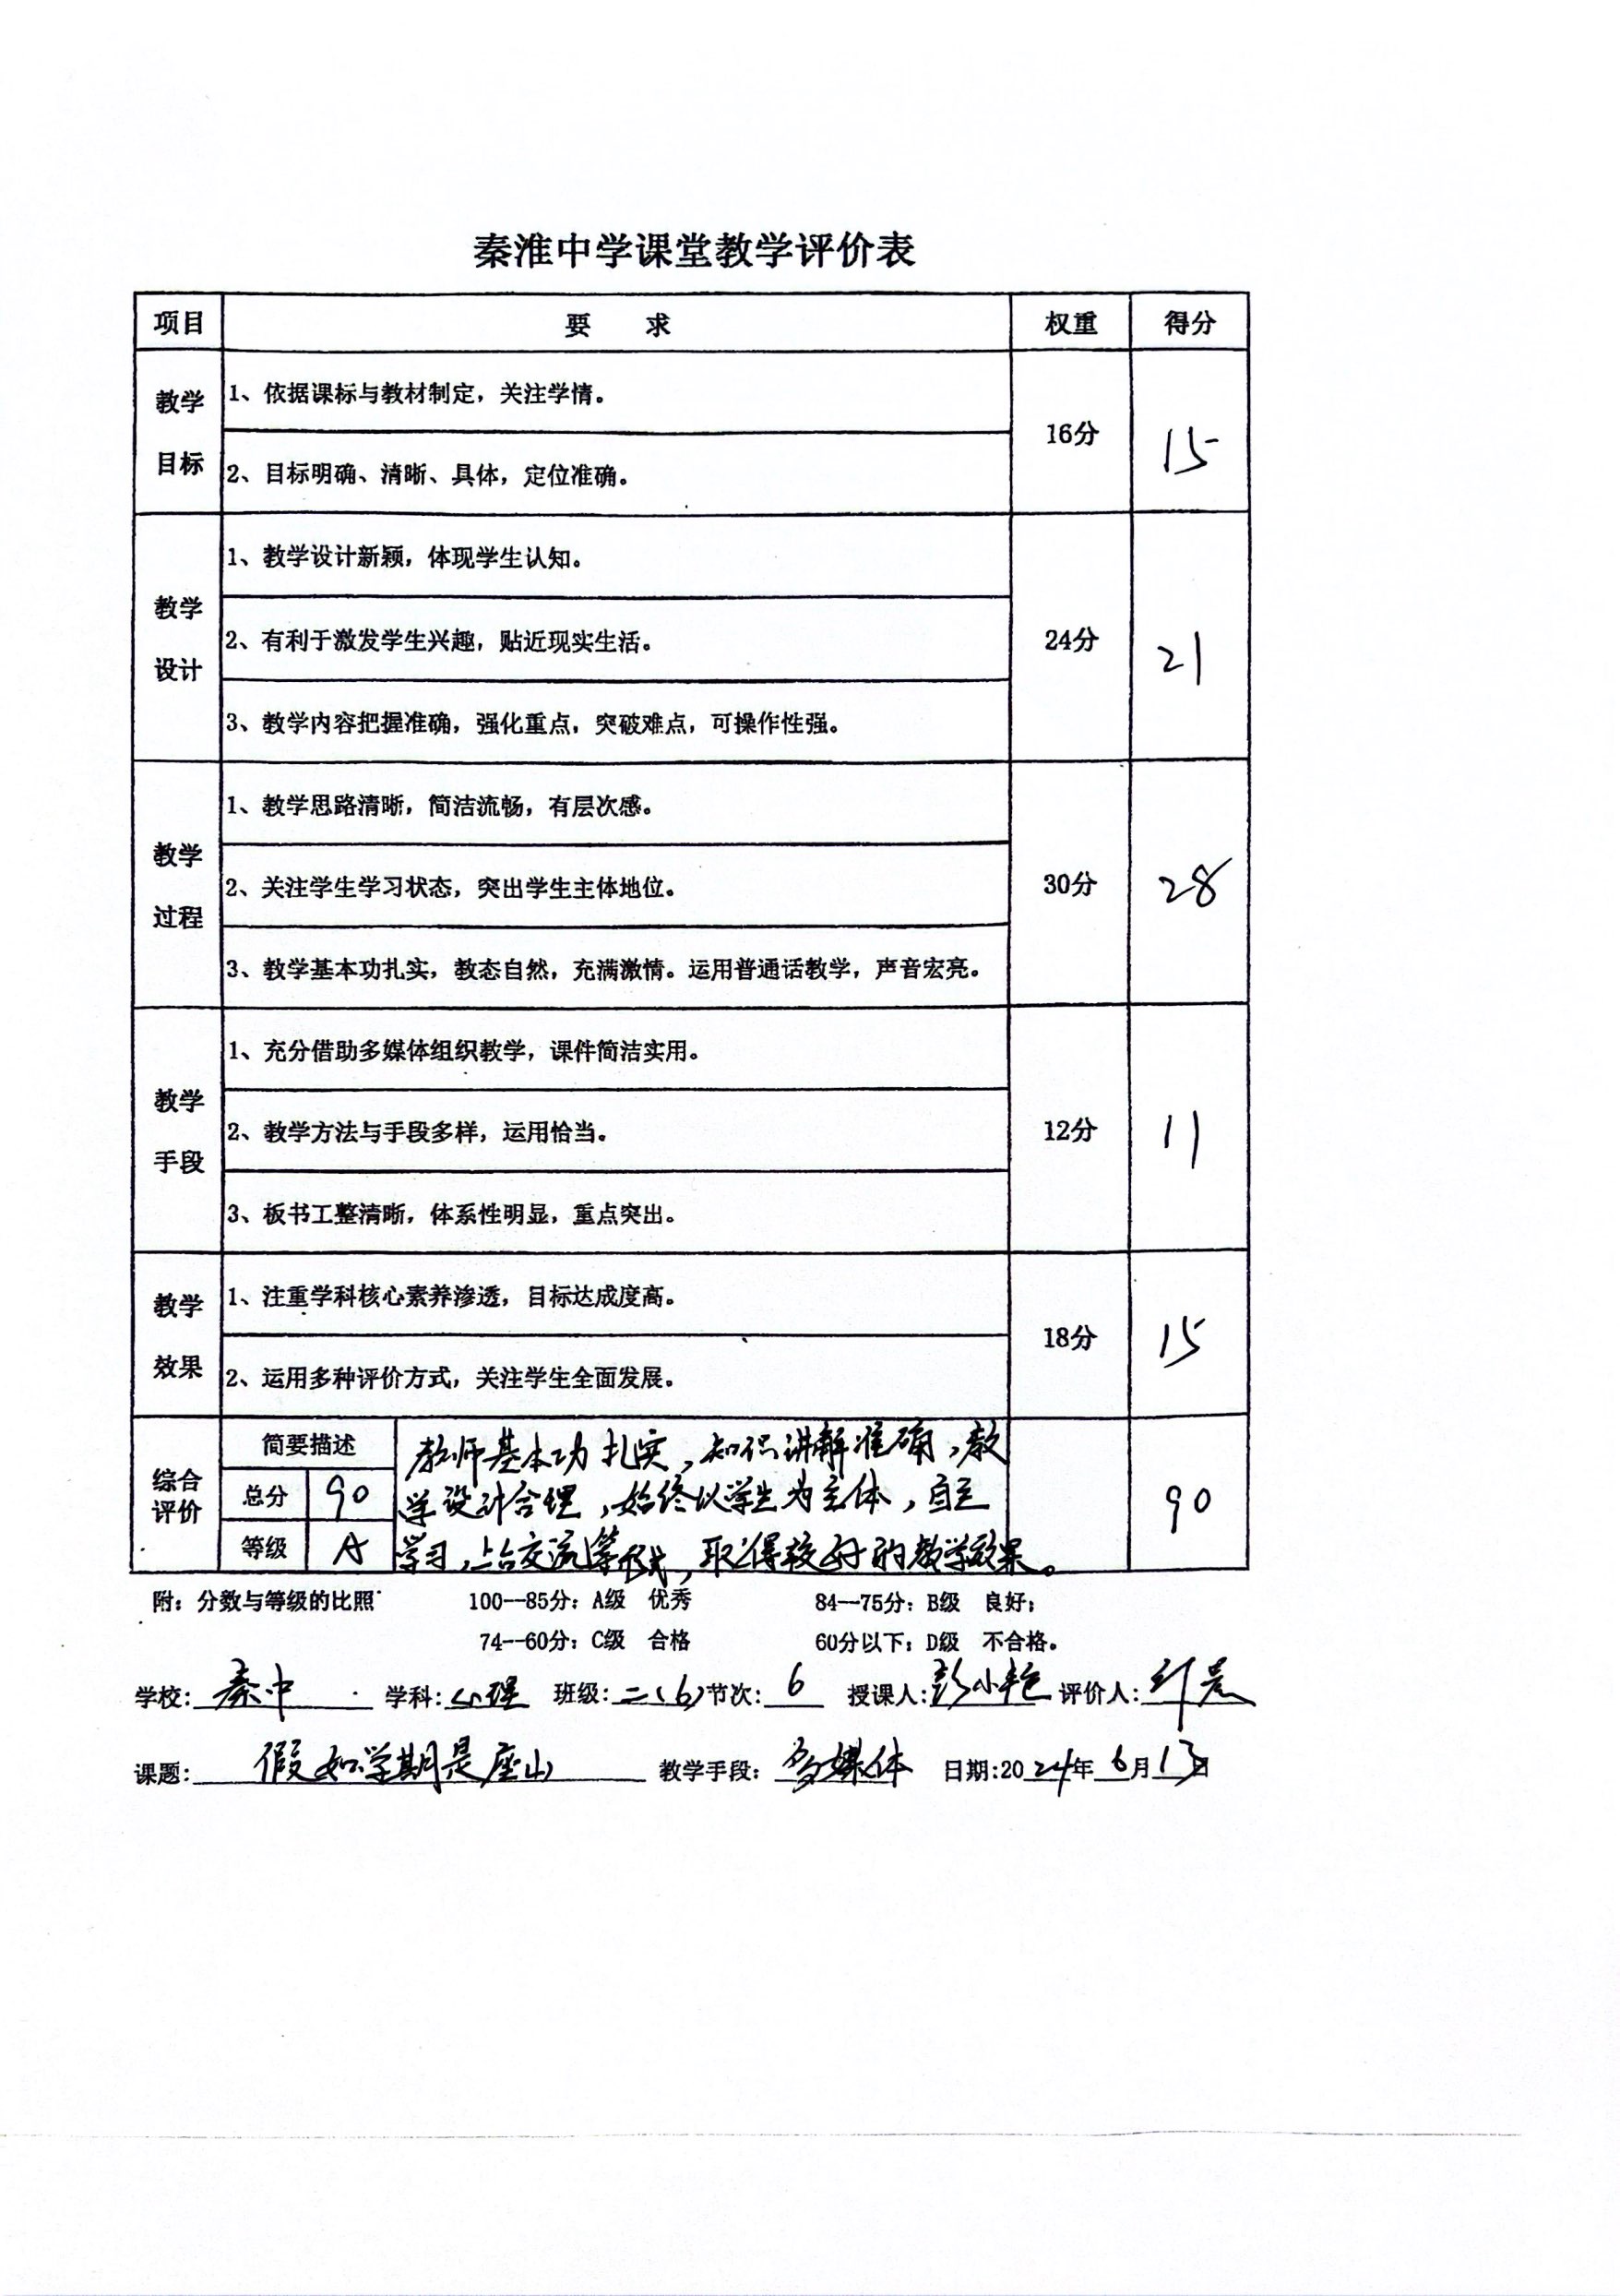 秦淮中学课堂教学评价表
项目 要 求 权重 得分
教学目标 1、依据课标与教材制定，关注学情。 16分 15
2、目标明确、清晰、具体，定位准确。
教学设计 1、教学设计新颖，体现学生认知。 24分 21
2、有利于激发学生兴趣，贴近现实生活。
3、教学内容把握准确，强化重点，突破难点，可操作性强。
教学过程 1、教学思路清晰，简洁流畅，有层次感。 30分 28
2、关注学生学习状态，突出学生主体地位。
3、教学基本功扎实，教态自然，充满激情。运用普通话教学，声音宏亮。
教学手段 1、充分借助多媒体组织教学，课件简洁实用。 12分 11
2、教学方法与手段多样，运用恰当。
3、板书工整清晰，体系性明显，重点突出。
教学效果 1、注重学科核心素养渗透，目标达成度高。 18分 15
2、运用多种评价方式，关注学生全面发展。
综合评价 简要描述 教师基本功扎实，知识讲解准确，教
总分 90 学设计合理，始终以学生为主体，自主 90
等级 A 学习，上台交流等形式，取得较好的教学效果。
附：分数与等级的比照 100--85分：A级 优秀 84--75分：B级 良好；
74--60分：C级 合格 60分以下：D级 不合格。
学校：秦中 学科：心理 班级：二（6）节次：6 授课人：彭小艳 评价人：
课题：假如学期是座山 教学手段：多媒体 日期：2024年6月13日